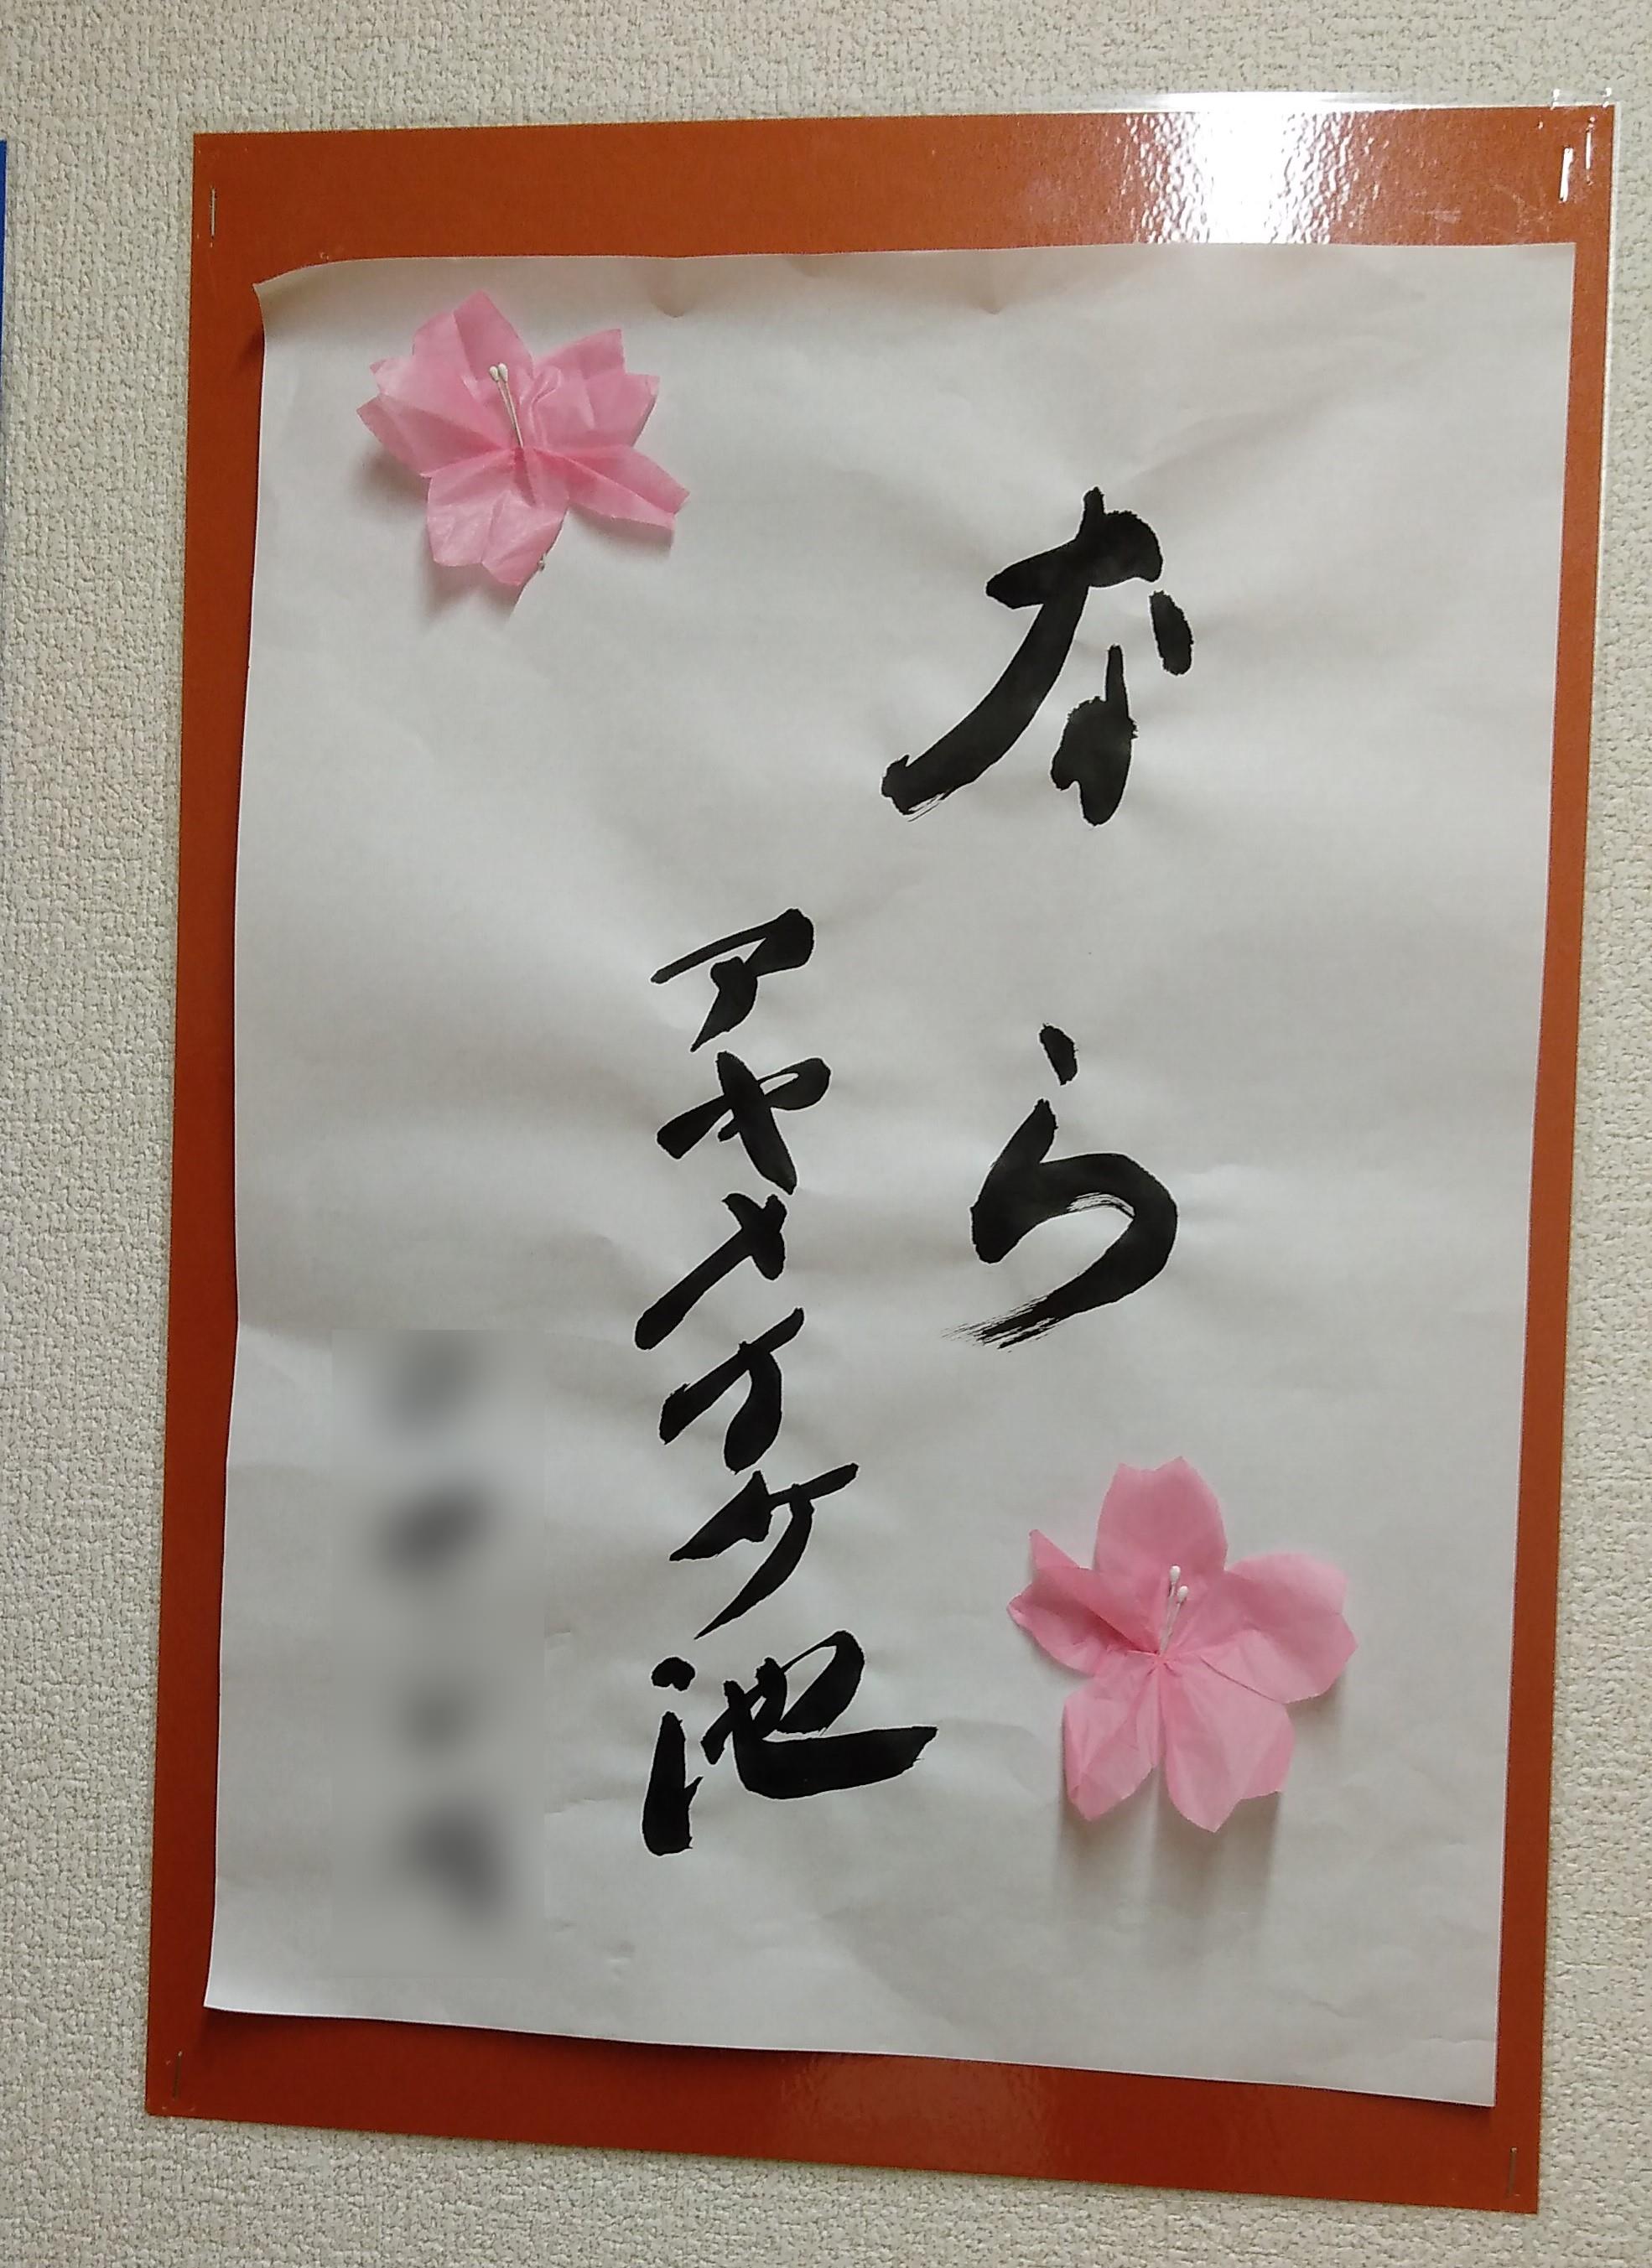 なら
アヤメイケ池